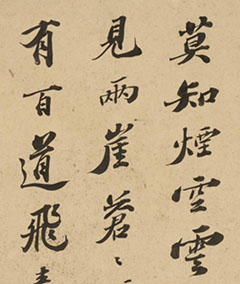 莫知煙空雲
見兩崖蒼〻
有百道飛